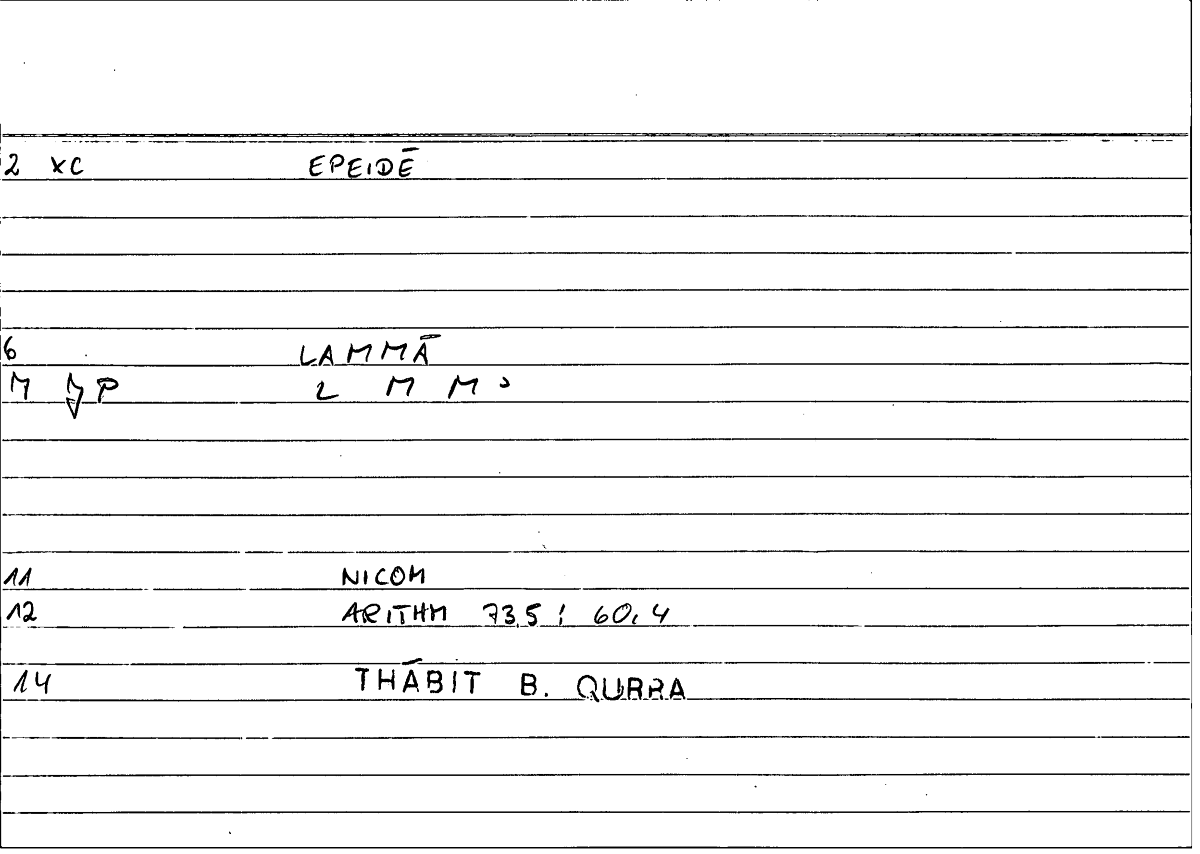 2 XC EPEIDĒ
6 LAMMĀ
L M M
11 NICOM
12 ARITHM 73,5 ; 60,4
14 THĀBIT B. QURRA